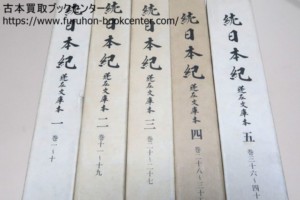 古本買取ブックセンター
https://www.furuhon-bookcenter.com/
続日本紀 蓬左文庫本 一 巻一~十
続日本紀 蓬左文庫本 二 巻十一~十九
続日本紀 蓬左文庫本 三 巻二十~二十七
続日本紀 蓬左文庫本 四
続日本紀 蓬左文庫本 五 巻三十六~四十